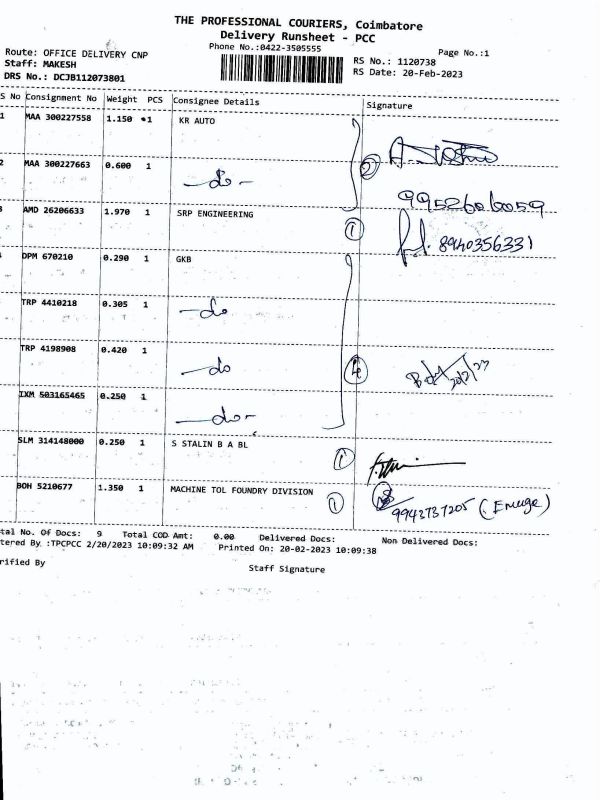 THE PROFESSIONAL COURIERS, Coimbatore
Delivery Runsheet - PCC
Phone No.:0422-3505555
Page No.:1
Route: OFFICE DELIVERY CNP
Staff: MAKESH
DRS No.: DCJB112073801
RS No.: 1120738
RS Date: 20-Feb-2023
S No Consignment No Weight PCS Consignee Details Signature
1 MAA 300227558 1.150 1 KR AUTO
2 MAA 300227663 0.600 1 —do-
②
9952606059
3 AMD 26206633 1.970 1 SRP ENGINEERING
① 8940356331
DPM 670210 0.290 1 GKB
TRP 4410218 0.305 1 —do
TRP 4198908 0.420 1 —do
④ 20/2/23
IXM 503165465 0.250 1 —do-
SLM 314148000 0.250 1 S STALIN B A BL
①
BOH 5210677 1.350 1 MACHINE TOL FOUNDRY DIVISION ①
9943737205
tal No. Of Docs: 9 Total COD Amt: 0.00 Delivered Docs: Non Delivered Docs:
tered By :TPCPCC 2/20/2023 10:09:32 AM Printed On: 20-02-2023 10:09:38
rified By
Staff Signature